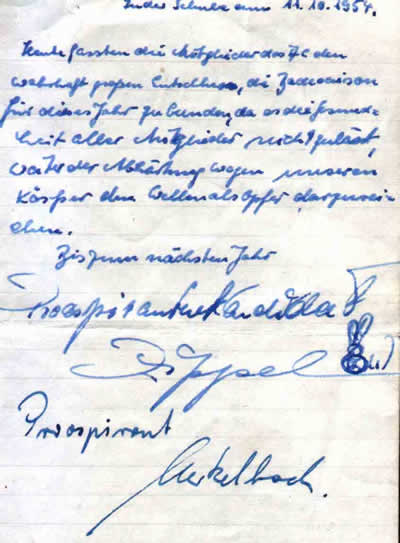 In der Schule am 11.10.1954.
Heute fassten die Mitglieder des FC den
wahrhaft großen Entschluss, die Badesaison
für dieses Jahr zu beenden, da es die Gesund-
heit aller Mitglieder nicht zulässt,
weiter der Abhärtung wegen unseren
Körper den Wellen als Opfer darzurei-
chen.
Bis zum nächsten Jahr
Kandidat
Dippel
Proospirant
Merkelbach.